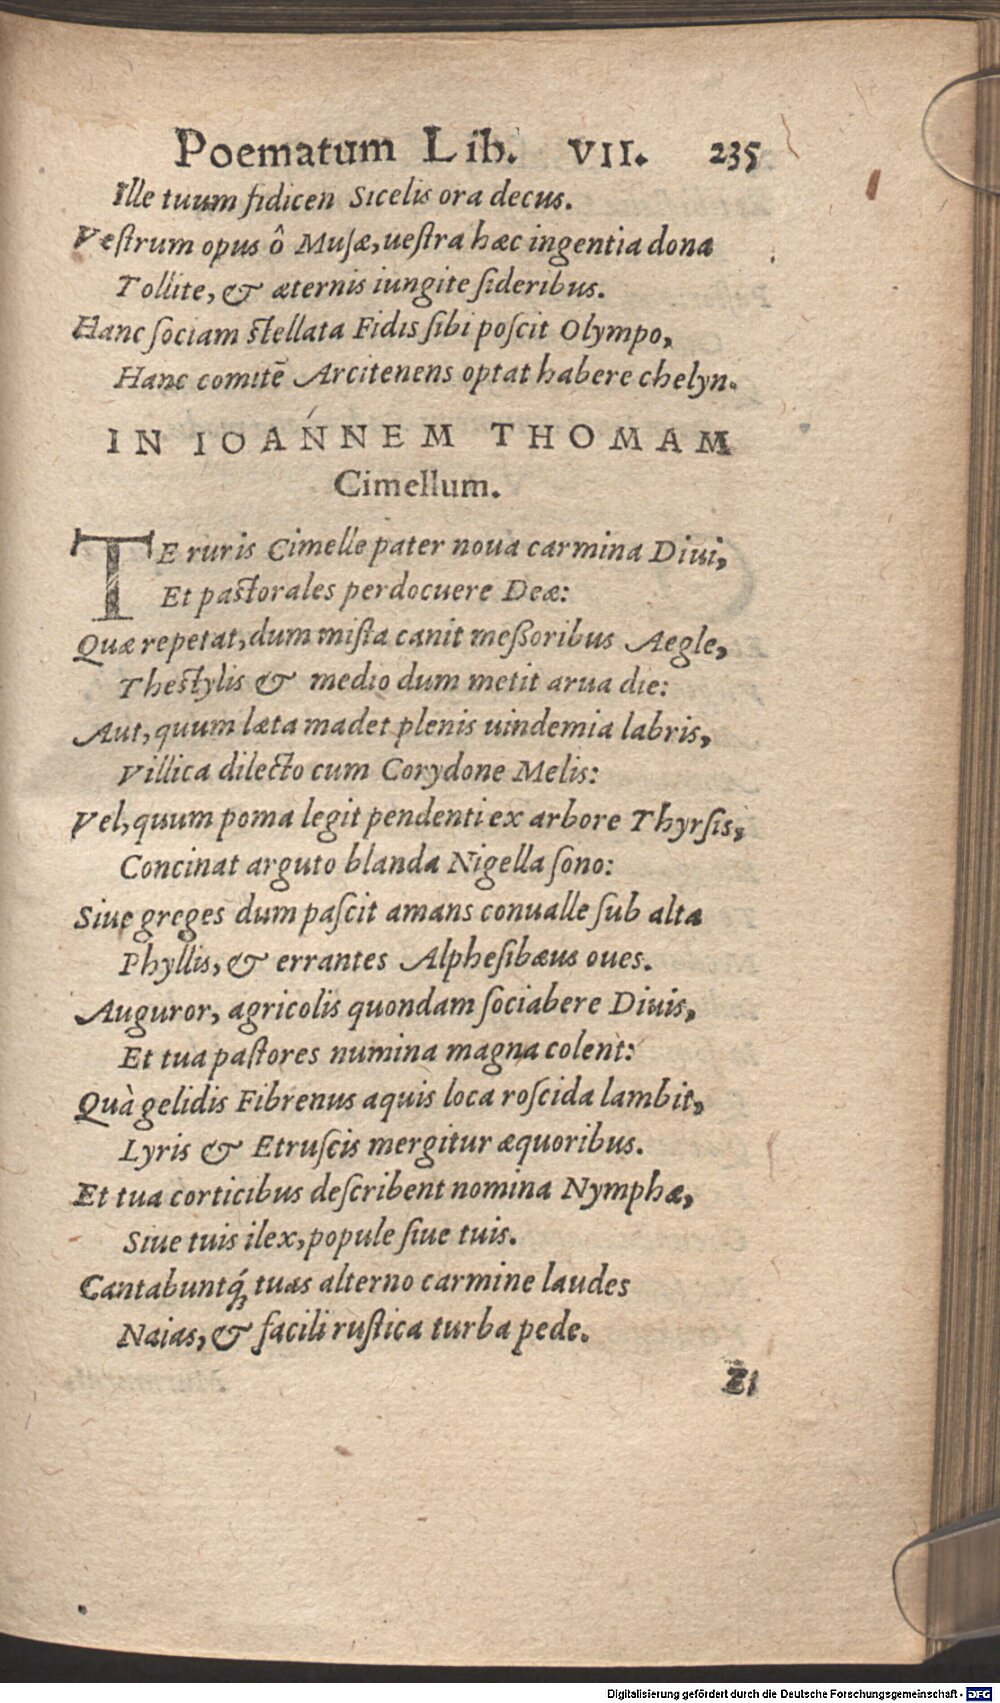 Poematum Lib. VII. 235
Ille tuum fidicen Sicelis ora decus.
Veſtrum opus ô Muſæ, ueſtra hæc ingentia dona
Tollite, & æternis iungite ſideribus.
Hanc ſociam ſtellata Fidis ſibi poſcit Olympo,
Hanc comitē Arcitenens optat habere chelyn.
IN IOANNEM THOMAM
Cimellum.
TE ruris Cimelle pater noua carmina Diui,
Et paſtorales perdocuere Deæ:
Quæ repetat, dum miſta canit meßoribus Aegle,
Theſtylis & medio dum metit arua die:
Aut, quum læta madet plenis uindemia labris,
Villica dilecto cum Corydone Melis:
Vel, quum poma legit pendenti ex arbore Thyrſis,
Concinat arguto blanda Nigella ſono:
Siue greges dum paſcit amans conualle ſub alta
Phyllis, & errantes Alpheſibæus oues.
Auguror, agricolis quondam ſociabere Diuis,
Et tua paſtores numina magna colent:
Quà gelidis Fibrenus aquis loca roſcida lambit,
Lyris & Etruſcis mergitur æquoribus.
Et tua corticibus deſcribent nomina Nymphæ,
Siue tuis ilex, popule ſiue tuis.
Cantabuntq́; tuas alterno carmine laudes
Naias, & facili ruſtica turba pede.
Digitalisierung gefördert durch die Deutsche Forschungsgemeinschaft - DFG